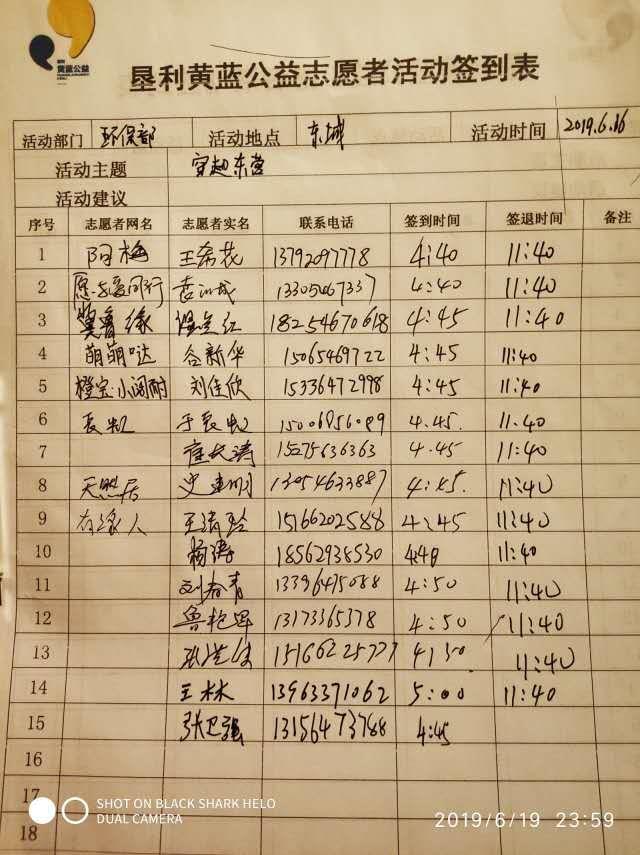 黄蓝公益
垦利黄蓝公益志愿者活动签到表
活动部门 环保部 活动地点 东城 活动时间 2019.6.16
活动主题 穿越东营
活动建议
序号 志愿者网名 志愿者实名 联系电话 签到时间 签退时间 备注
1 阿梅 王希花 13792097778 4:40 11:40
2 愿与爱同行 13305467337 4:40 11:40
3 冀鲁缘 18254670618 4:45 11:40
4 萌萌哒 谷新华 15065469722 4:45 11:40
5 橙宝·小阔耐 刘佳欣 15336472998 4:45 11:40
6 4.45. 11.40
7 崔长涛 15275636363 4.45 11:40
8 天然居 史建明 13054633887 4:45. 11:40
9 有缘人 王清玲 15166202588 4:45 11:40
10 杨涛 18562938530 4:40 11:40
11 刘春青 13396495088 4:50 11:40
12 鲁艳思 13173365378 4:50 11:40
13 15166225777 4:50 11:40
14 王林 13963371062 5:00 11:40
15 张卫强 13156473788 4:45
16
17
18
SHOT ON BLACK SHARK HELO
DUAL CAMERA
2019/6/19 23:59